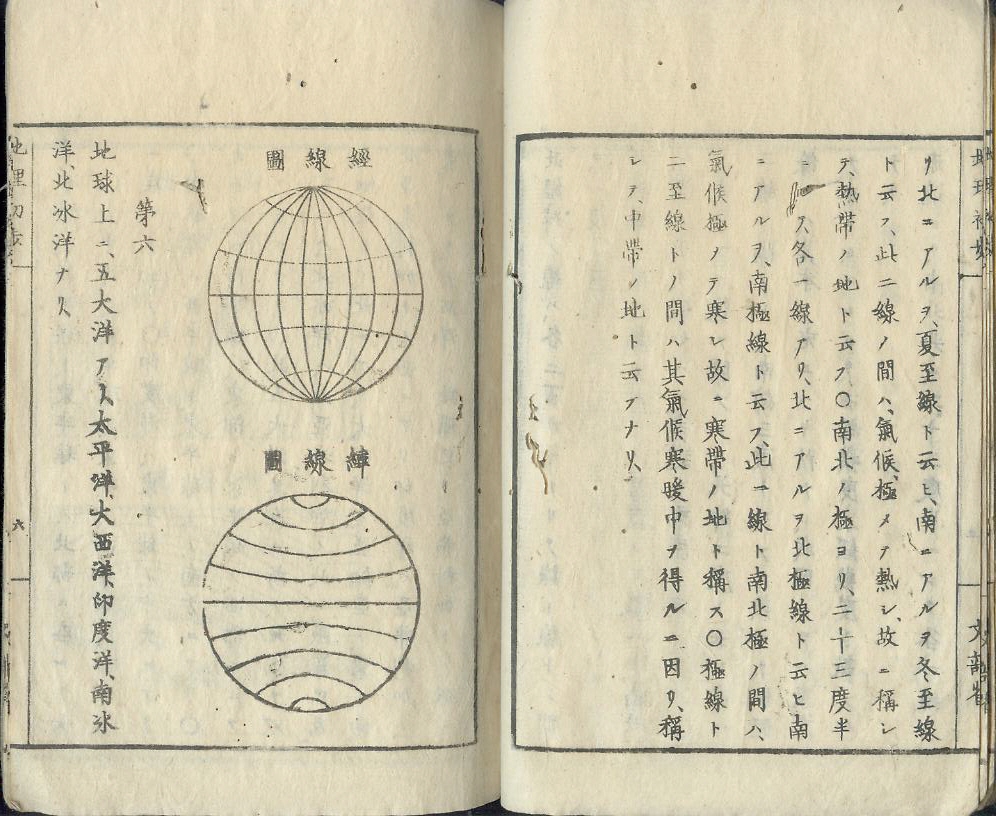 リ北ニアルヲ、夏至線ト云ヒ、南ニアルヲ冬至線
ト云フ、此二線ノ間ハ、氣候極メテ熱シ、故ニ稱シ
テ、熱帶ノ地ト云フ〇南北ノ極ヨリ、二十三度半
ニ各一線アリ、北ニアルヲ北極線ト云ヒ南
ニアルヲ、南極線ト云フ、此二線ト南北極ノ間ハ、
氣候極メテ寒シ故ニ寒帶ノ地ト稱ス〇極線ト
二至線トノ間ハ其氣候寒暖中ヲ得ルニ因リ、稱
シテ、中帶ノ地ト云フナリ、
文部省
經線圖
緯線圖
第六
地球上ニ、五大洋アリ、太平洋、大西洋、印度洋、南氷
洋、北氷洋ナリ、
地理初歩
六